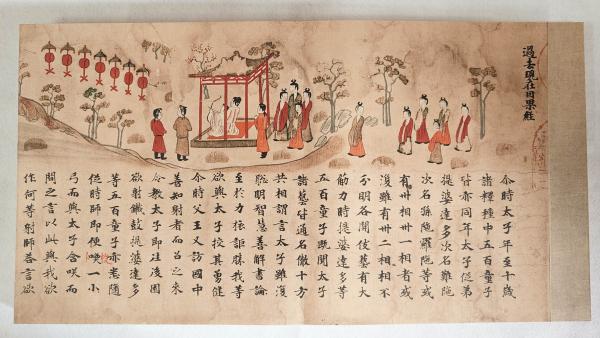 過去現在因果經
尒時太子年至十歳
諸釋種中五百童子
皆亦同年太子従弟
提婆達多次名難陁
次名孫陁羅難陁等或
有卅相卅一相者或
復雖有卅二相相不
分明各閑伎藝有大
筋力時提婆達多等
五百童子既聞太子
諸藝皆通名徹十方
共相謂言太子雖復
聡明智慧善解書論
至於力詎勝我等
欲與太子挍其勇健
尒時父王又訪國中
善知射者而召之来
令教太子即往後園
欲射鐵鼓提婆達多
等五百童子亦悉随
従時師即便授一小
弓而與太子含咲而
問之言以此與我欲
作何等射師荅言欲